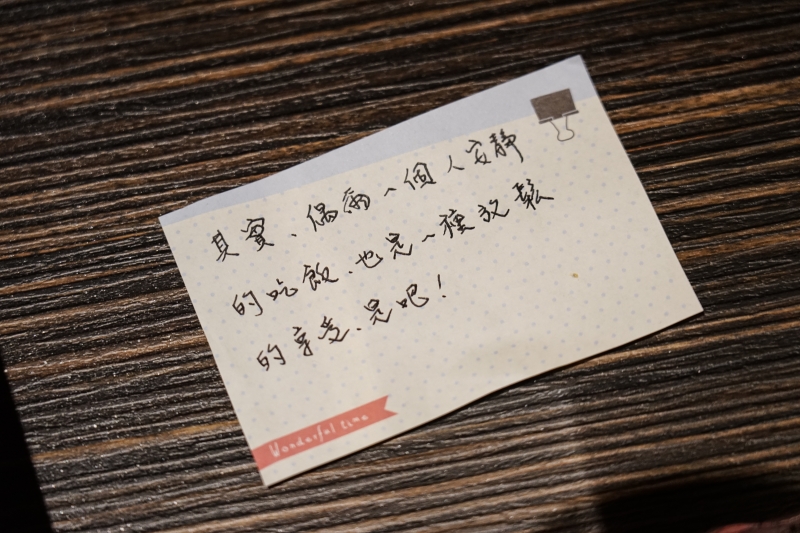 其實、偶爾一個人安靜
的吃飯、也是一種放鬆
的享受、是吧!
Wonderful time